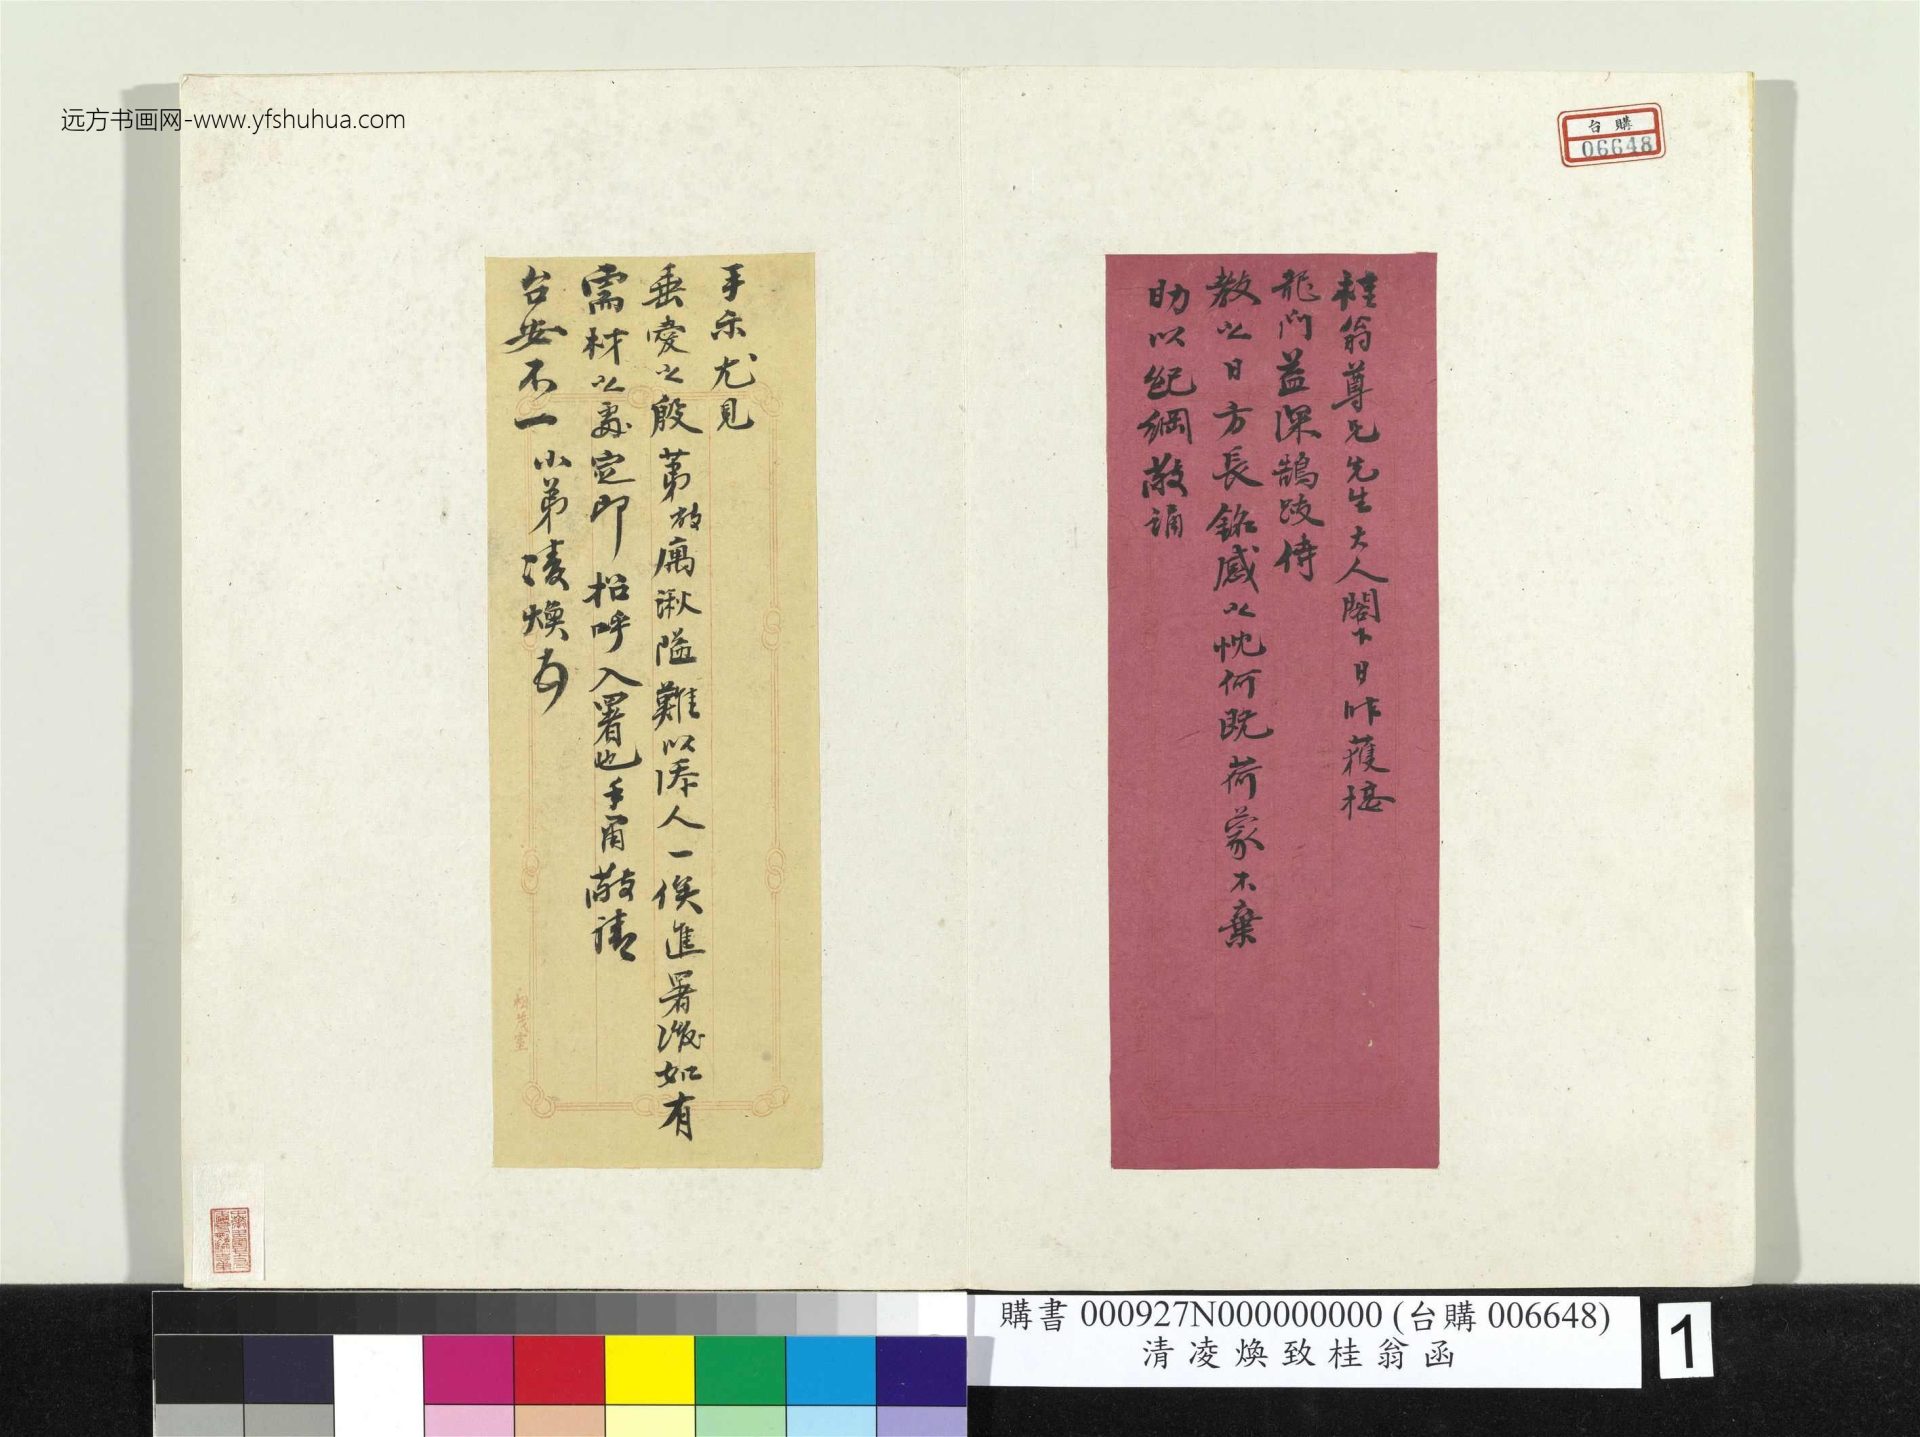 远方书画网-www.yfshuhua.com
台購
06648
桂翁尊兄先生大人閣下日昨獲登
龍門益深鵠跂侍
教之日方長銘感之忱何既荷蒙不棄
助以紀綱敬誦
手示尤見
垂愛之殷苐敝寓湫隘難以添人一俟進署後如有
需材之處定即招呼入署也手肅敬請
台安不一 小弟凌煥頓
購書 000927N000000000 (台購 006648)
清凌煥致桂翁函
1